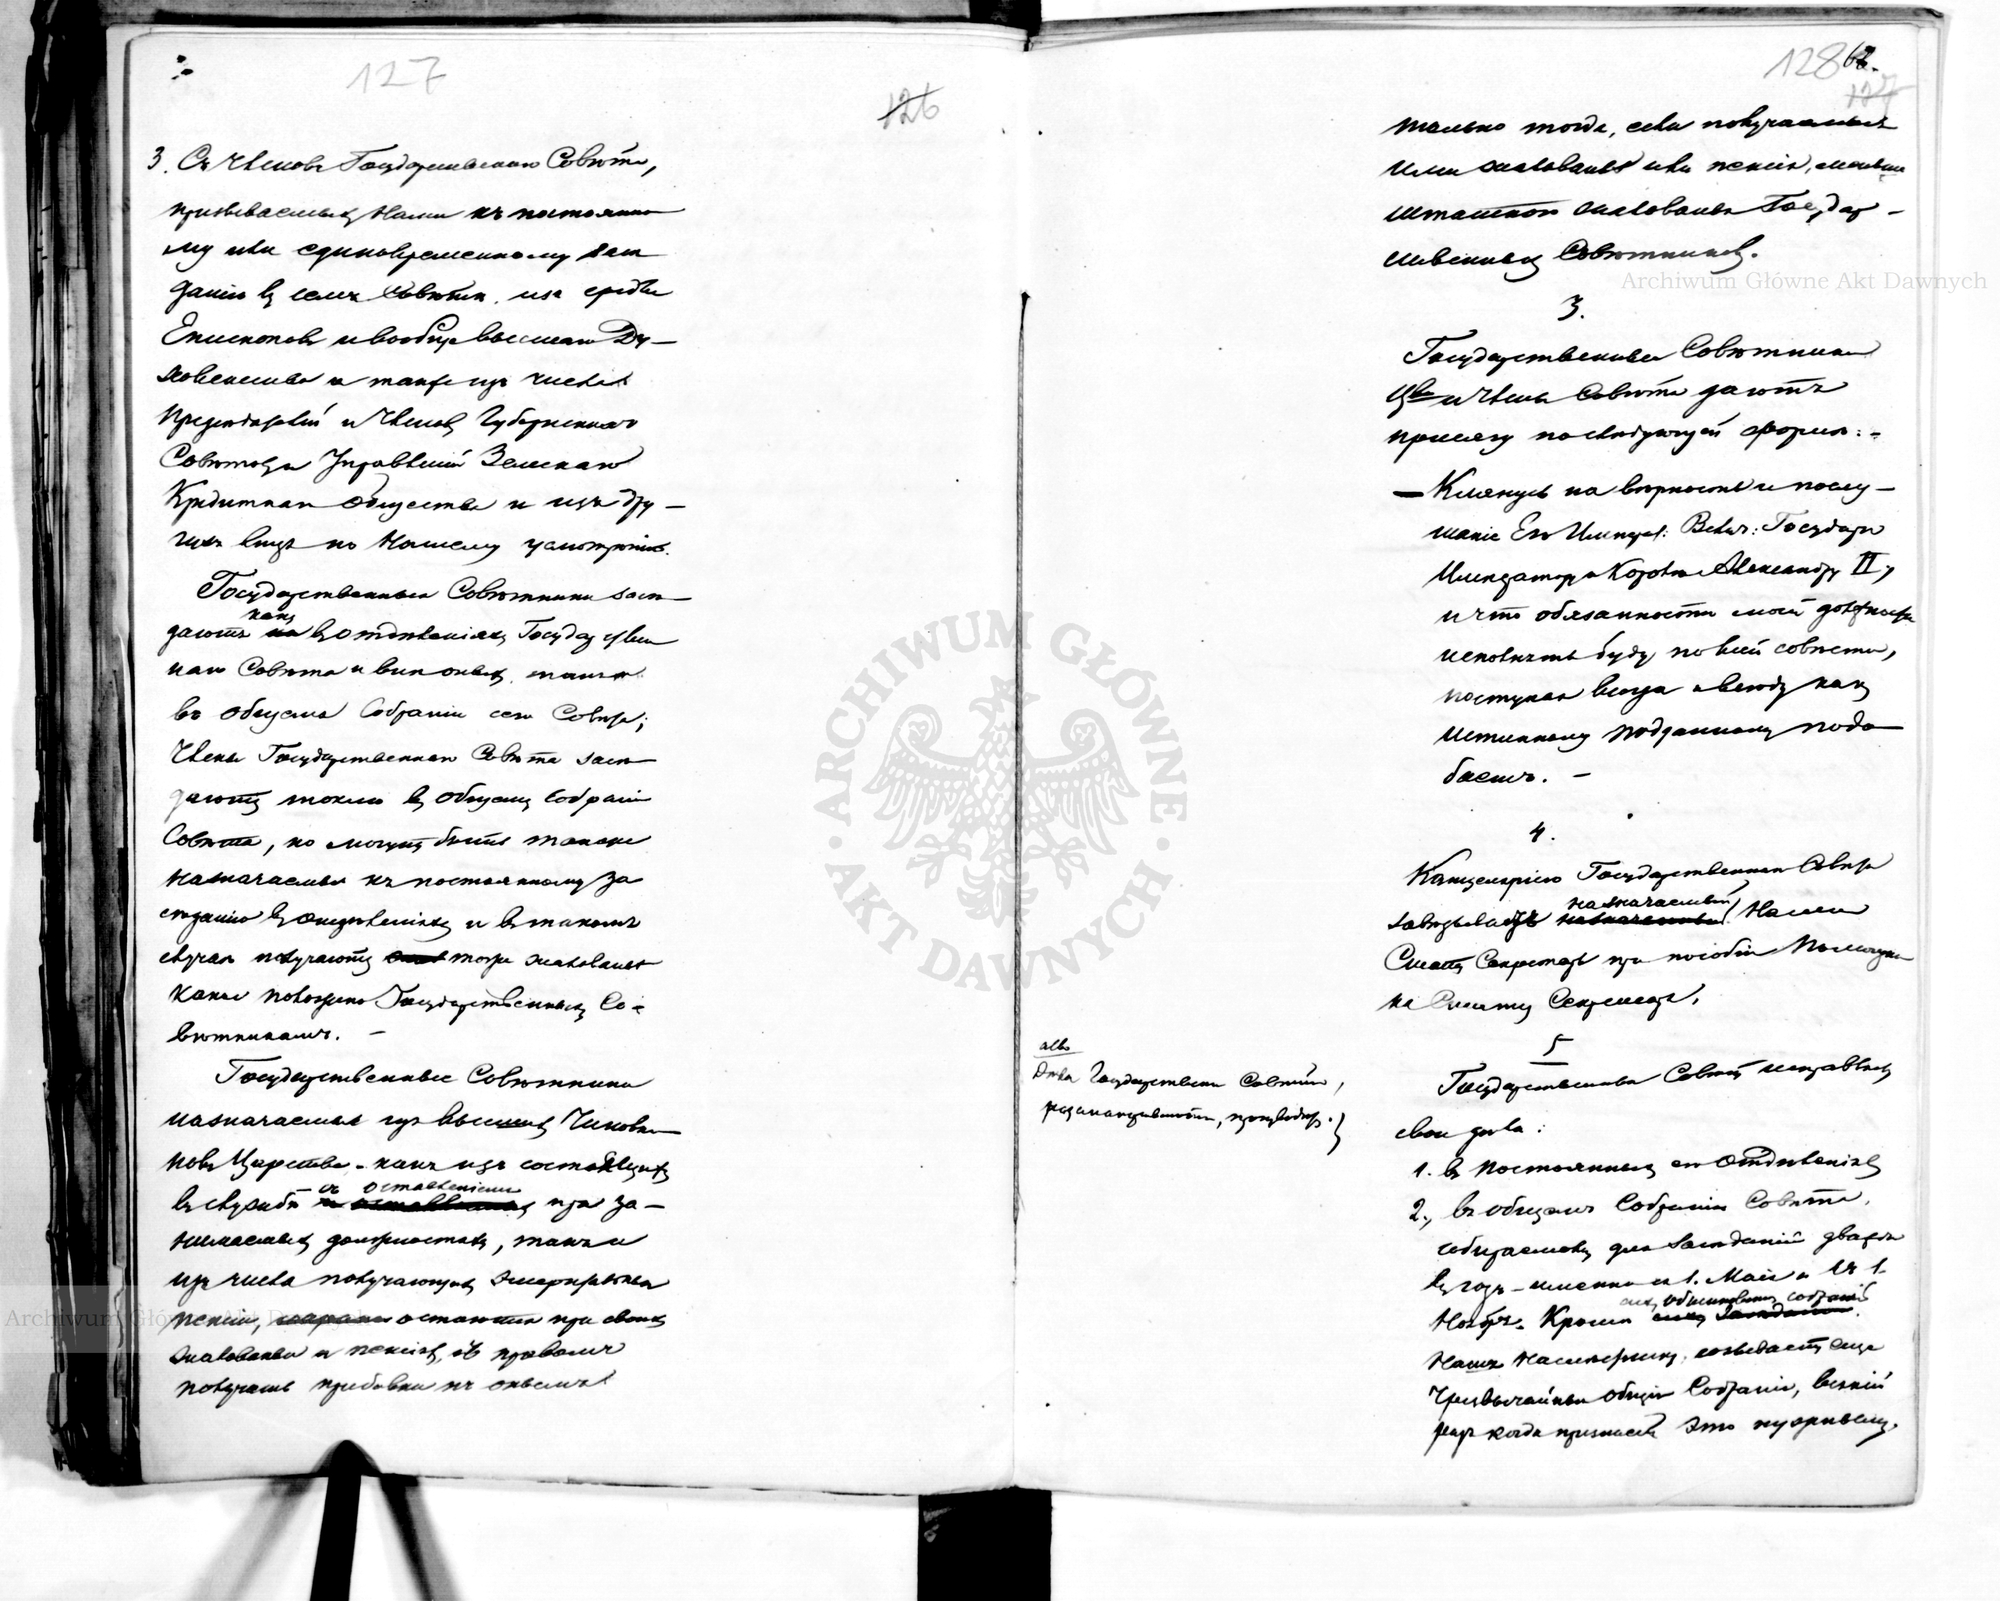 127
126
3. Съ Членовъ Государственнаго Совѣта,
призываемыхъ Нами къ постоянно
му или единовременному засѣ
данію въ семъ Совѣтѣ, изъ среды
Епископовъ и вообще высшаго Ду-
ховенства и также изъ числа
Предсѣдателей и Членовъ Губернскихъ
Совѣтовъ и Управленій Земскаго
Кредитнаго Общества и изъ дру-
гихъ лицъ по Нашему усмотрѣнію.
Государственные Совѣтники засѣ-
какъ
даютъ въ отдѣленіяхъ Государствен
наго Совѣта такъ и
въ общемъ Собраніи сего Совѣта;
Члены Государственнаго Совѣта засѣ-
даютъ токмо въ общемъ Собраніи
Совѣта, но могутъ быть также
назначаемы къ постоянному за
сѣданію въ отдѣленіяхъ и въ такомъ
случаѣ получаютъ тоже жалованье
какое положено Государственнымъ Со-
вѣтникамъ. —
Государственные Совѣтники
назначаемы изъ высшихъ Чинов-
новъ Царства, какъ изъ состоящихъ
съ оставленіемъ
въ службѣ при за-
нимаемыхъ должностяхъ, такъ и
изъ числа получающихъ эмеритальныя
пенсіи, остаются при своихъ
жалованьи и пенсіяхъ, съ правомъ
получать прибавки къ онымъ
128
127
только тогда, если получаемыя
ими жалованье или пенсія, меньше
штатнаго жалованья Государ-
ственныхъ Совѣтниковъ.
3.
Государственные Совѣтники
и Члены Совѣта даютъ
присягу по слѣдующей формѣ: -
— Клянусь на вѣрность и послу-
шаніе Его Императ: Велич: Государю
Императору и Королю Александру II,
и что обязанности моей должности
исполнять буду по всей совѣсти,
поступая всегда и всюду какъ
истинному подданному подо
баетъ. —
4.
Канцеляріею Государственнаго Совѣта
назначаемый
завѣдываетъ назначенный Нами
Статсъ Секретарь при пособіи Помощни
ка Статсъ Секретаря.
5
Государственный Совѣтъ исправляетъ
свои дѣла:
albo
Дѣла Государственнаго Совѣта,
разсматриваются, производятся.
1. въ постоянныхъ его Отдѣленіяхъ
2., въ общемъ Собраніи Совѣта,
собираемомъ для засѣданій дважды
въ годъ — именно съ 1. Мая и съ 1.
сихъ обыкновенныхъ собраній
Ноября. Кромѣ сихъ засѣданій
Нашъ Намѣстникъ, созываетъ еще
Чрезвычайныя общія Собранія, всякій
разъ когда признаетъ это нужнымъ.
Archiwum Główne Akt Dawnych
ARCHIWUM GŁÓWNE
AKT DAWNYCH
Archiwum Główne Akt Dawnych